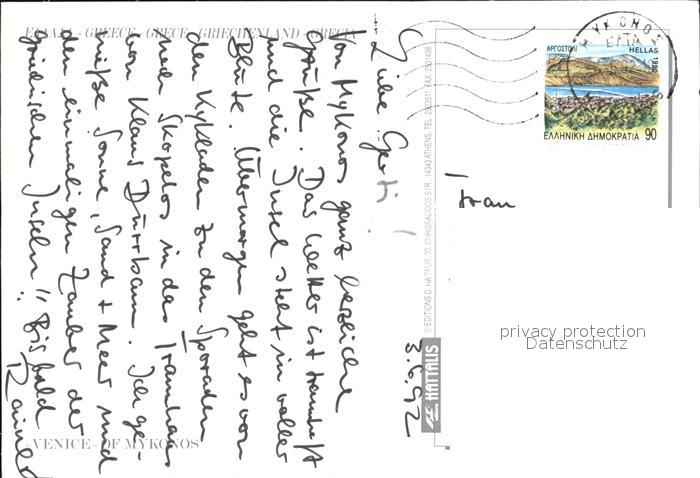 ΕΛΛΑΔΑ - GREECE - GRECE - GRIECHENLAND - GRECIA
3.6.92
Liebe Gerti!
Von Mykonos ganz herzliche
Grüße. Das Wetter ist traumhaft
und die Insel steht in voller
Blüte. Übermorgen geht es von
den Kykladen zu den Sporaden
nach Skopelos in das Traumhaus
von Klaus Dürrbaum. Ich ge-
nieße Sonne, Sand + Meer und
den einmaligen Zauber der
griechischen Inseln!! Bis bald
Rainer
"VENICE" OF MYKONOS
© EDITIONS D. HAITALIS 30, CHRISSALIDOS STR., 14343 ATHENS. TEL: 2583511, FAX:
HAITALIS
ΜΥΚΟΝΟΣ
ΕΛΤΑ
ΑΡΓΟΣΤΟΛΙ
HELLAS
ΕΛΛΗΝΙΚΗ ΔΗΜΟΚΡΑΤΙΑ 90
Frau
privacy protection
Datenschutz